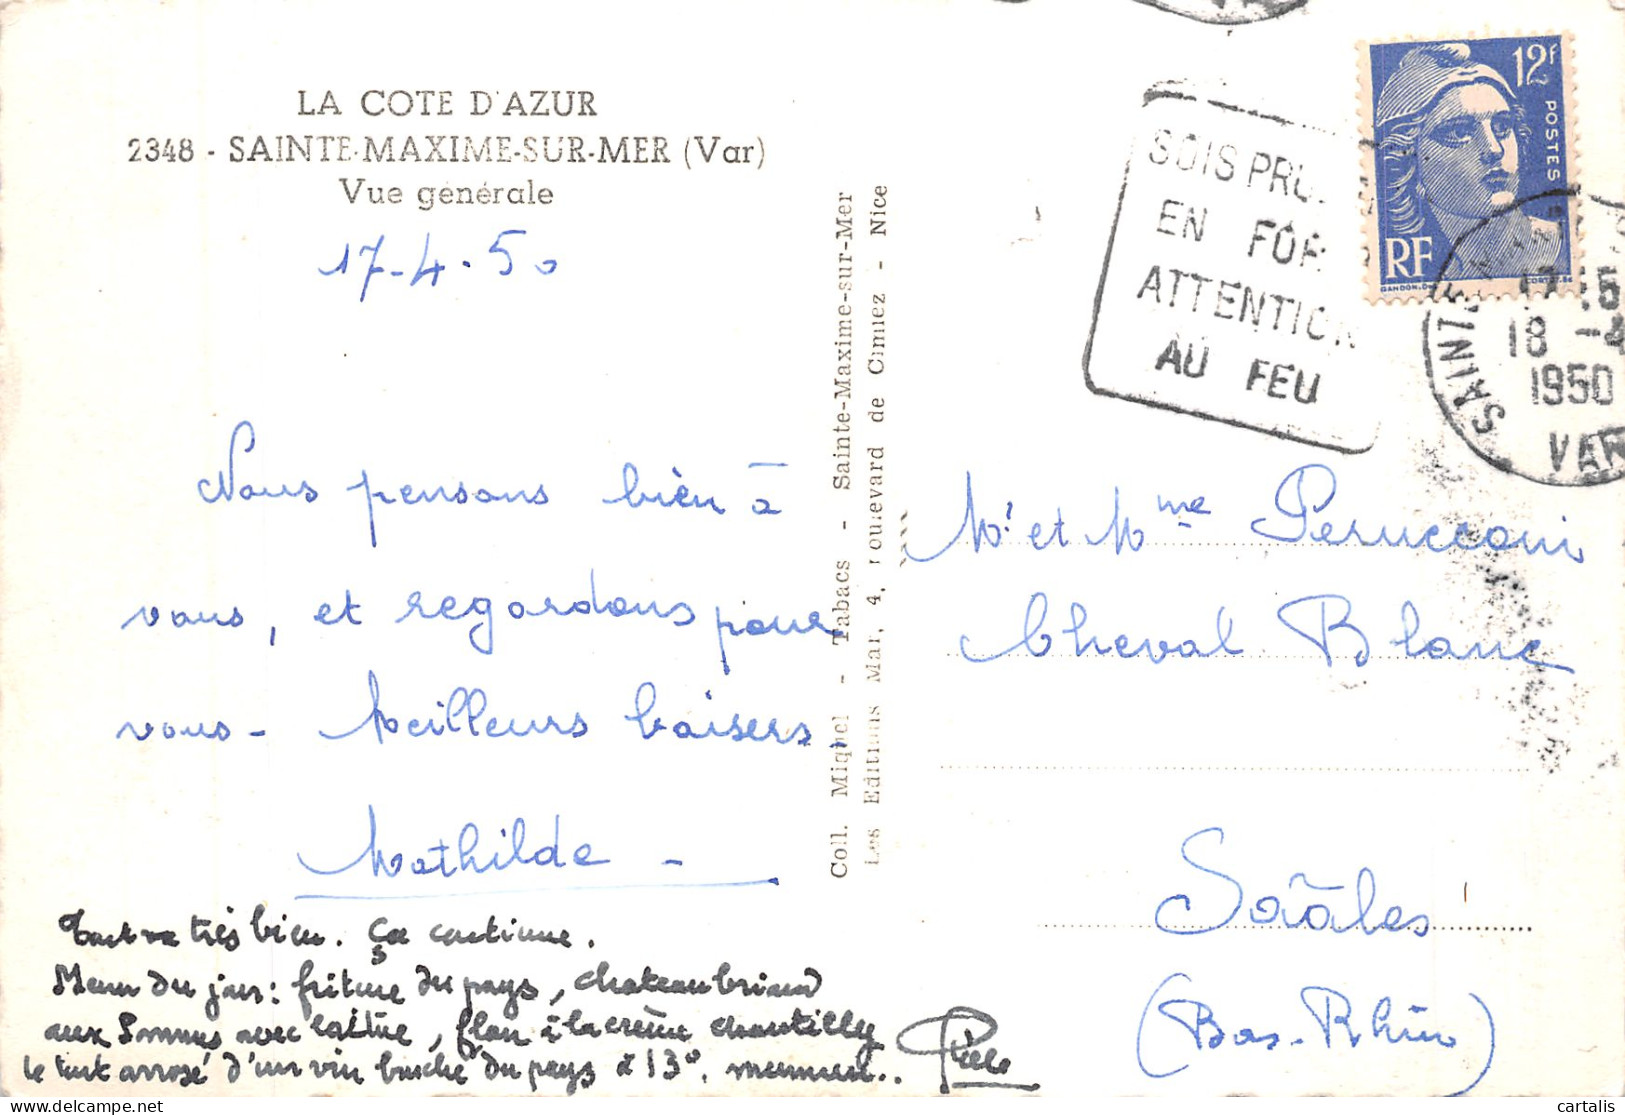 LA COTE D'AZUR
2348 - SAINTE-MAXIME-SUR-MER (Var)
Vue générale
17-4.50
Nous pensons bien à
vous, et regardons pour
vous - Meilleurs baisers.
Mathilde -
Tout va très bien. Ça continue.
Menu du jour: friture du pays, chateaubriand
aux Pommes avec laitue, flan à la crème chantilly
le tout arrosé d'un vin du pays à 13°.
Coll. Miquel - Tabacs - Sainte-Maxime-sur-Mer
Les Editions Mar, 4, boulevard de Cimiez - Nice
SOIS PRU
EN FOR
ATTENTION
AU FEU
12F
POSTES
RF
GANDON
SAINTE MAXIME
18 -4
1950
VAR
Mr et Mme Perucconi
Cheval Blanc
Saâles
(Bas-Rhin)
cartalis